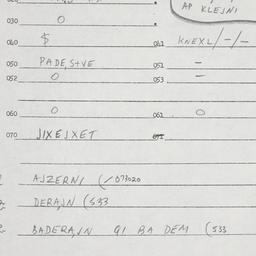 AP KLEJNI
030 0
040 $ 041 KNEXL/-/-
050 PADE, S+VE 051 -
052 0 053 -
060 0 061 0
070 JIXEJXET 071
AJZERNI (/073020
DERAJN (533
BADERAJN 91 BA DEM (533